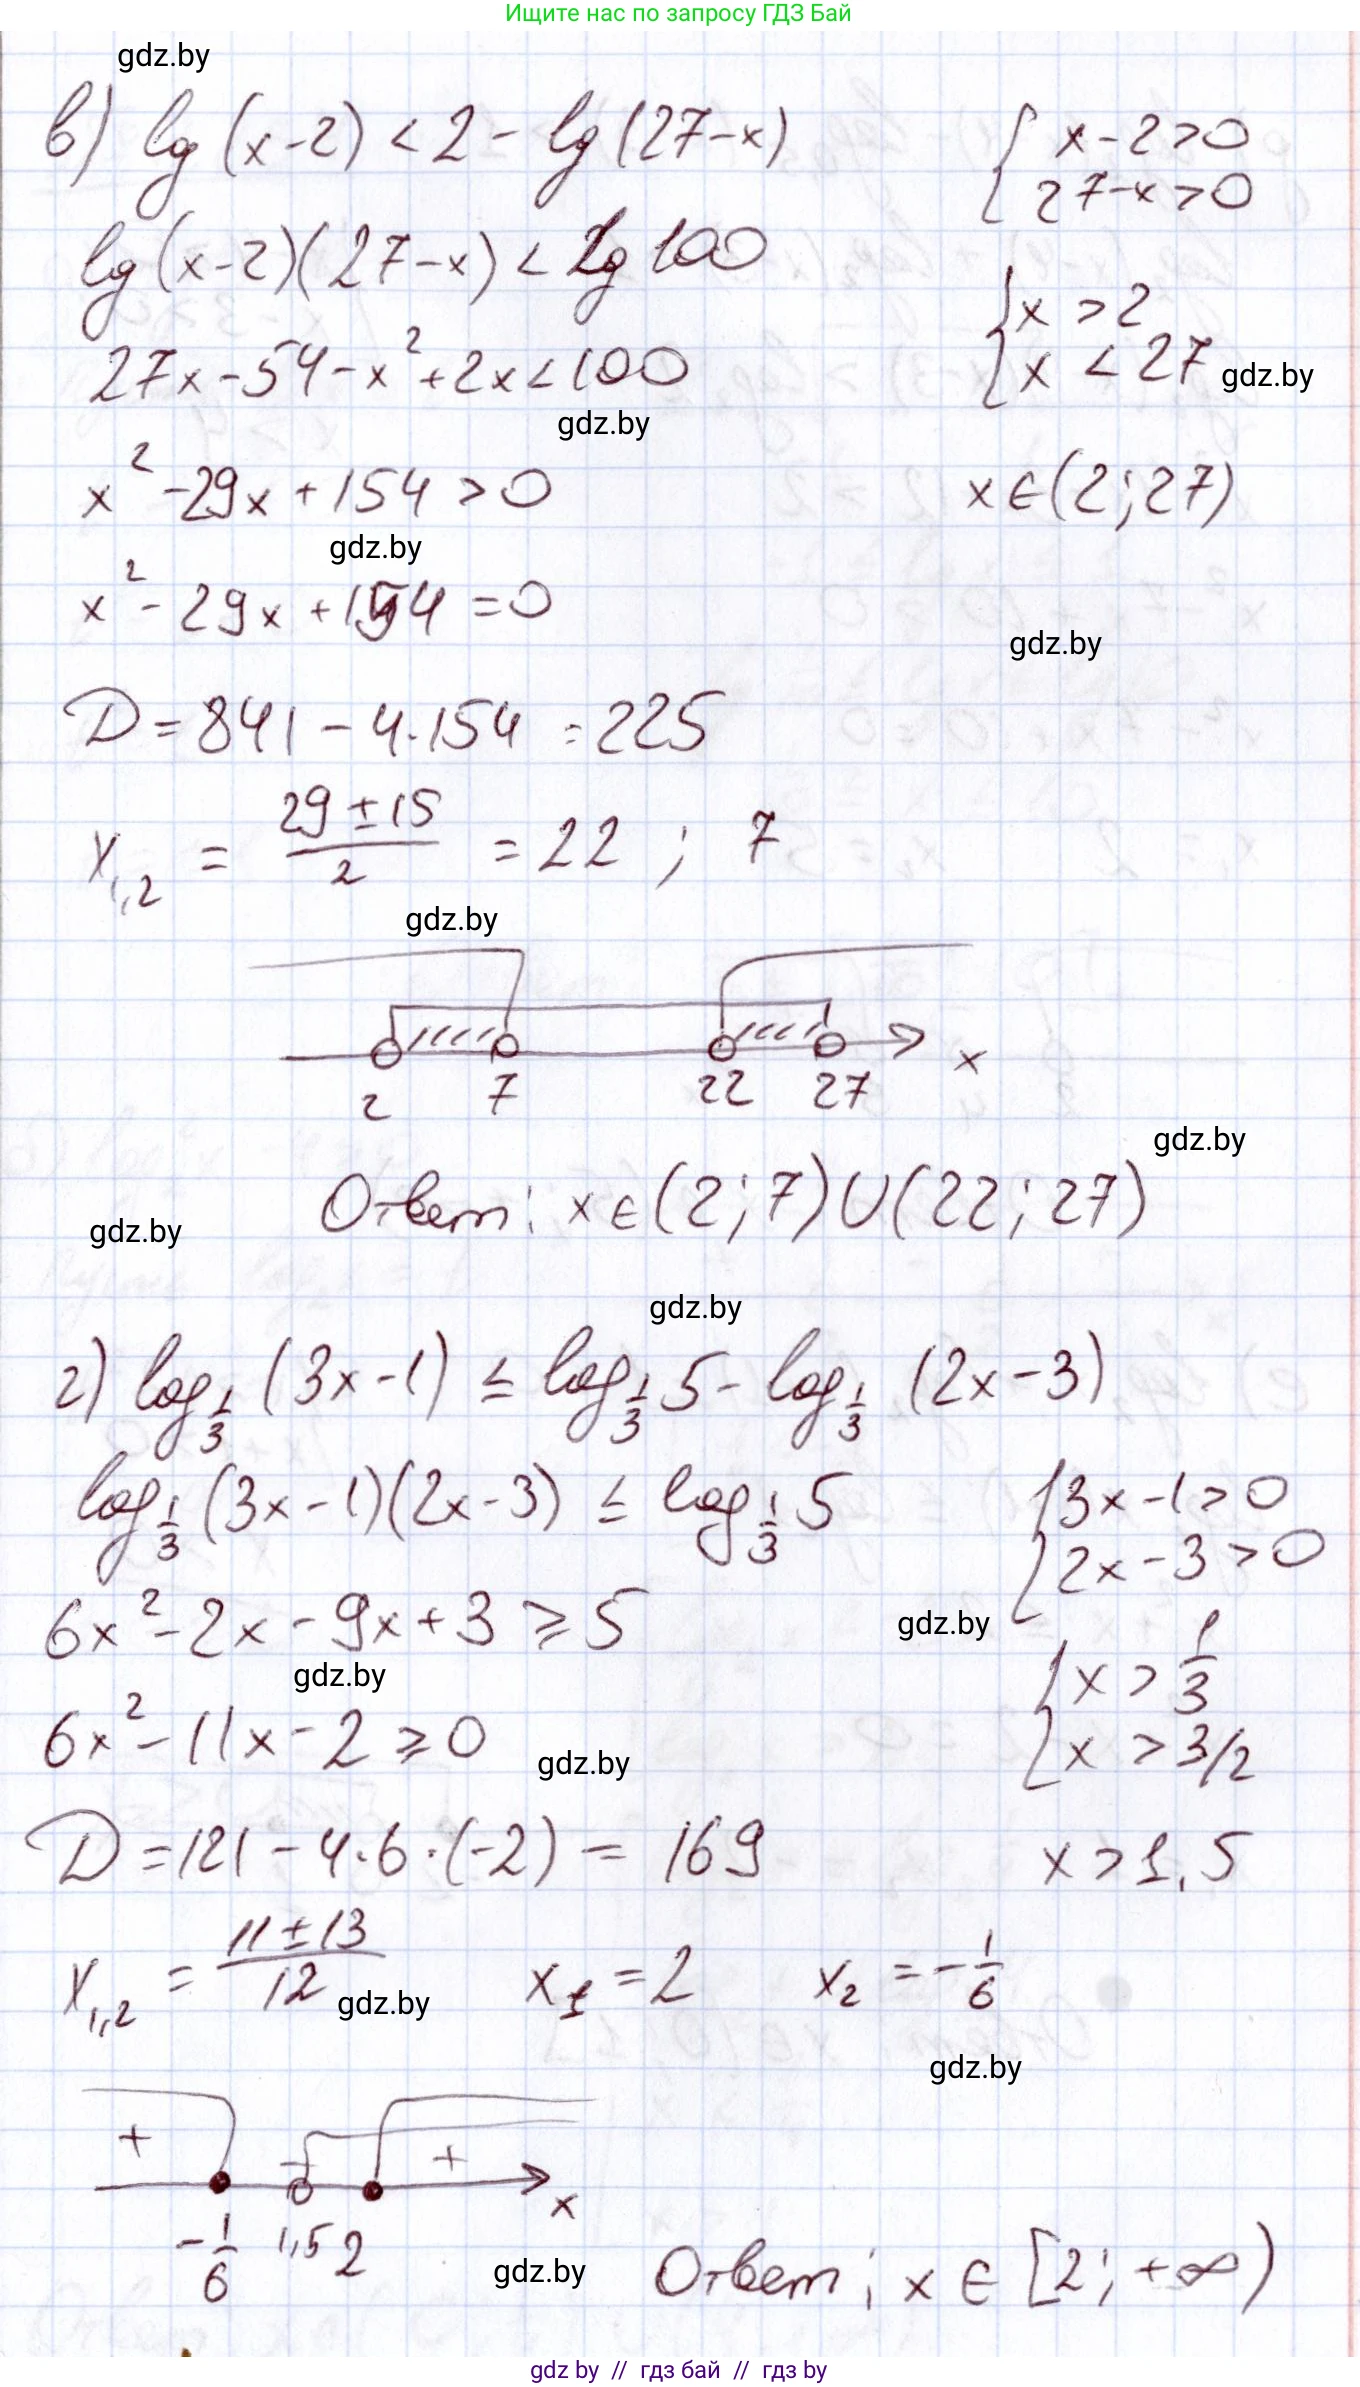 Ищите нас по запросу ГДЗ Бай
gdz.by
в) lg(x-2) < 2 - lg(27-x)
{ x-2>0
27-x>0
lg(x-2)(27-x) < lg 100
{ x > 2
x < 27
gdz.by
27x-54-x²+2x<100
gdz.by
x²-29x+154>0
x∈(2;27)
gdz.by
x²-29x+154=0
gdz.by
D=841-4·154=225
x₁,₂ = (29±15)/2 = 22 ; 7
gdz.by
2 7 22 27 x
gdz.by
Ответ: x∈(2;7)∪(22;27)
gdz.by
gdz.by
г) log_{1/3}(3x-1) ≤ log_{1/3}5 - log_{1/3}(2x-3)
log_{1/3}(3x-1)(2x-3) ≤ log_{1/3}5
{ 3x-1>0
2x-3>0
6x²-2x-9x+3≥5
gdz.by
gdz.by
{ x > 1/3
x > 3/2
6x²-11x-2≥0
gdz.by
D=121-4·6·(-2) = 169
x>1,5
x₁,₂ = (11±13)/12
gdz.by
x₁=2
x₂=-1/6
gdz.by
+ - +
-1/6 1,5 2 x
gdz.by
Ответ: x∈[2;+∞)
gdz.by // гдз бай // гдз by